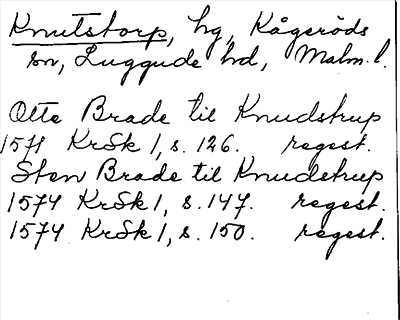 Knutstorp, hg, Kågeröds
sn, Luggude hd, Malm. l.
Otte Brade til Knudstrup
1571 KrSk 1, s. 126. regest.
Sten Brade til Knudstrup
1574 KrSk 1, s. 147. regest.
1574 KrSk 1, s. 150. regest.